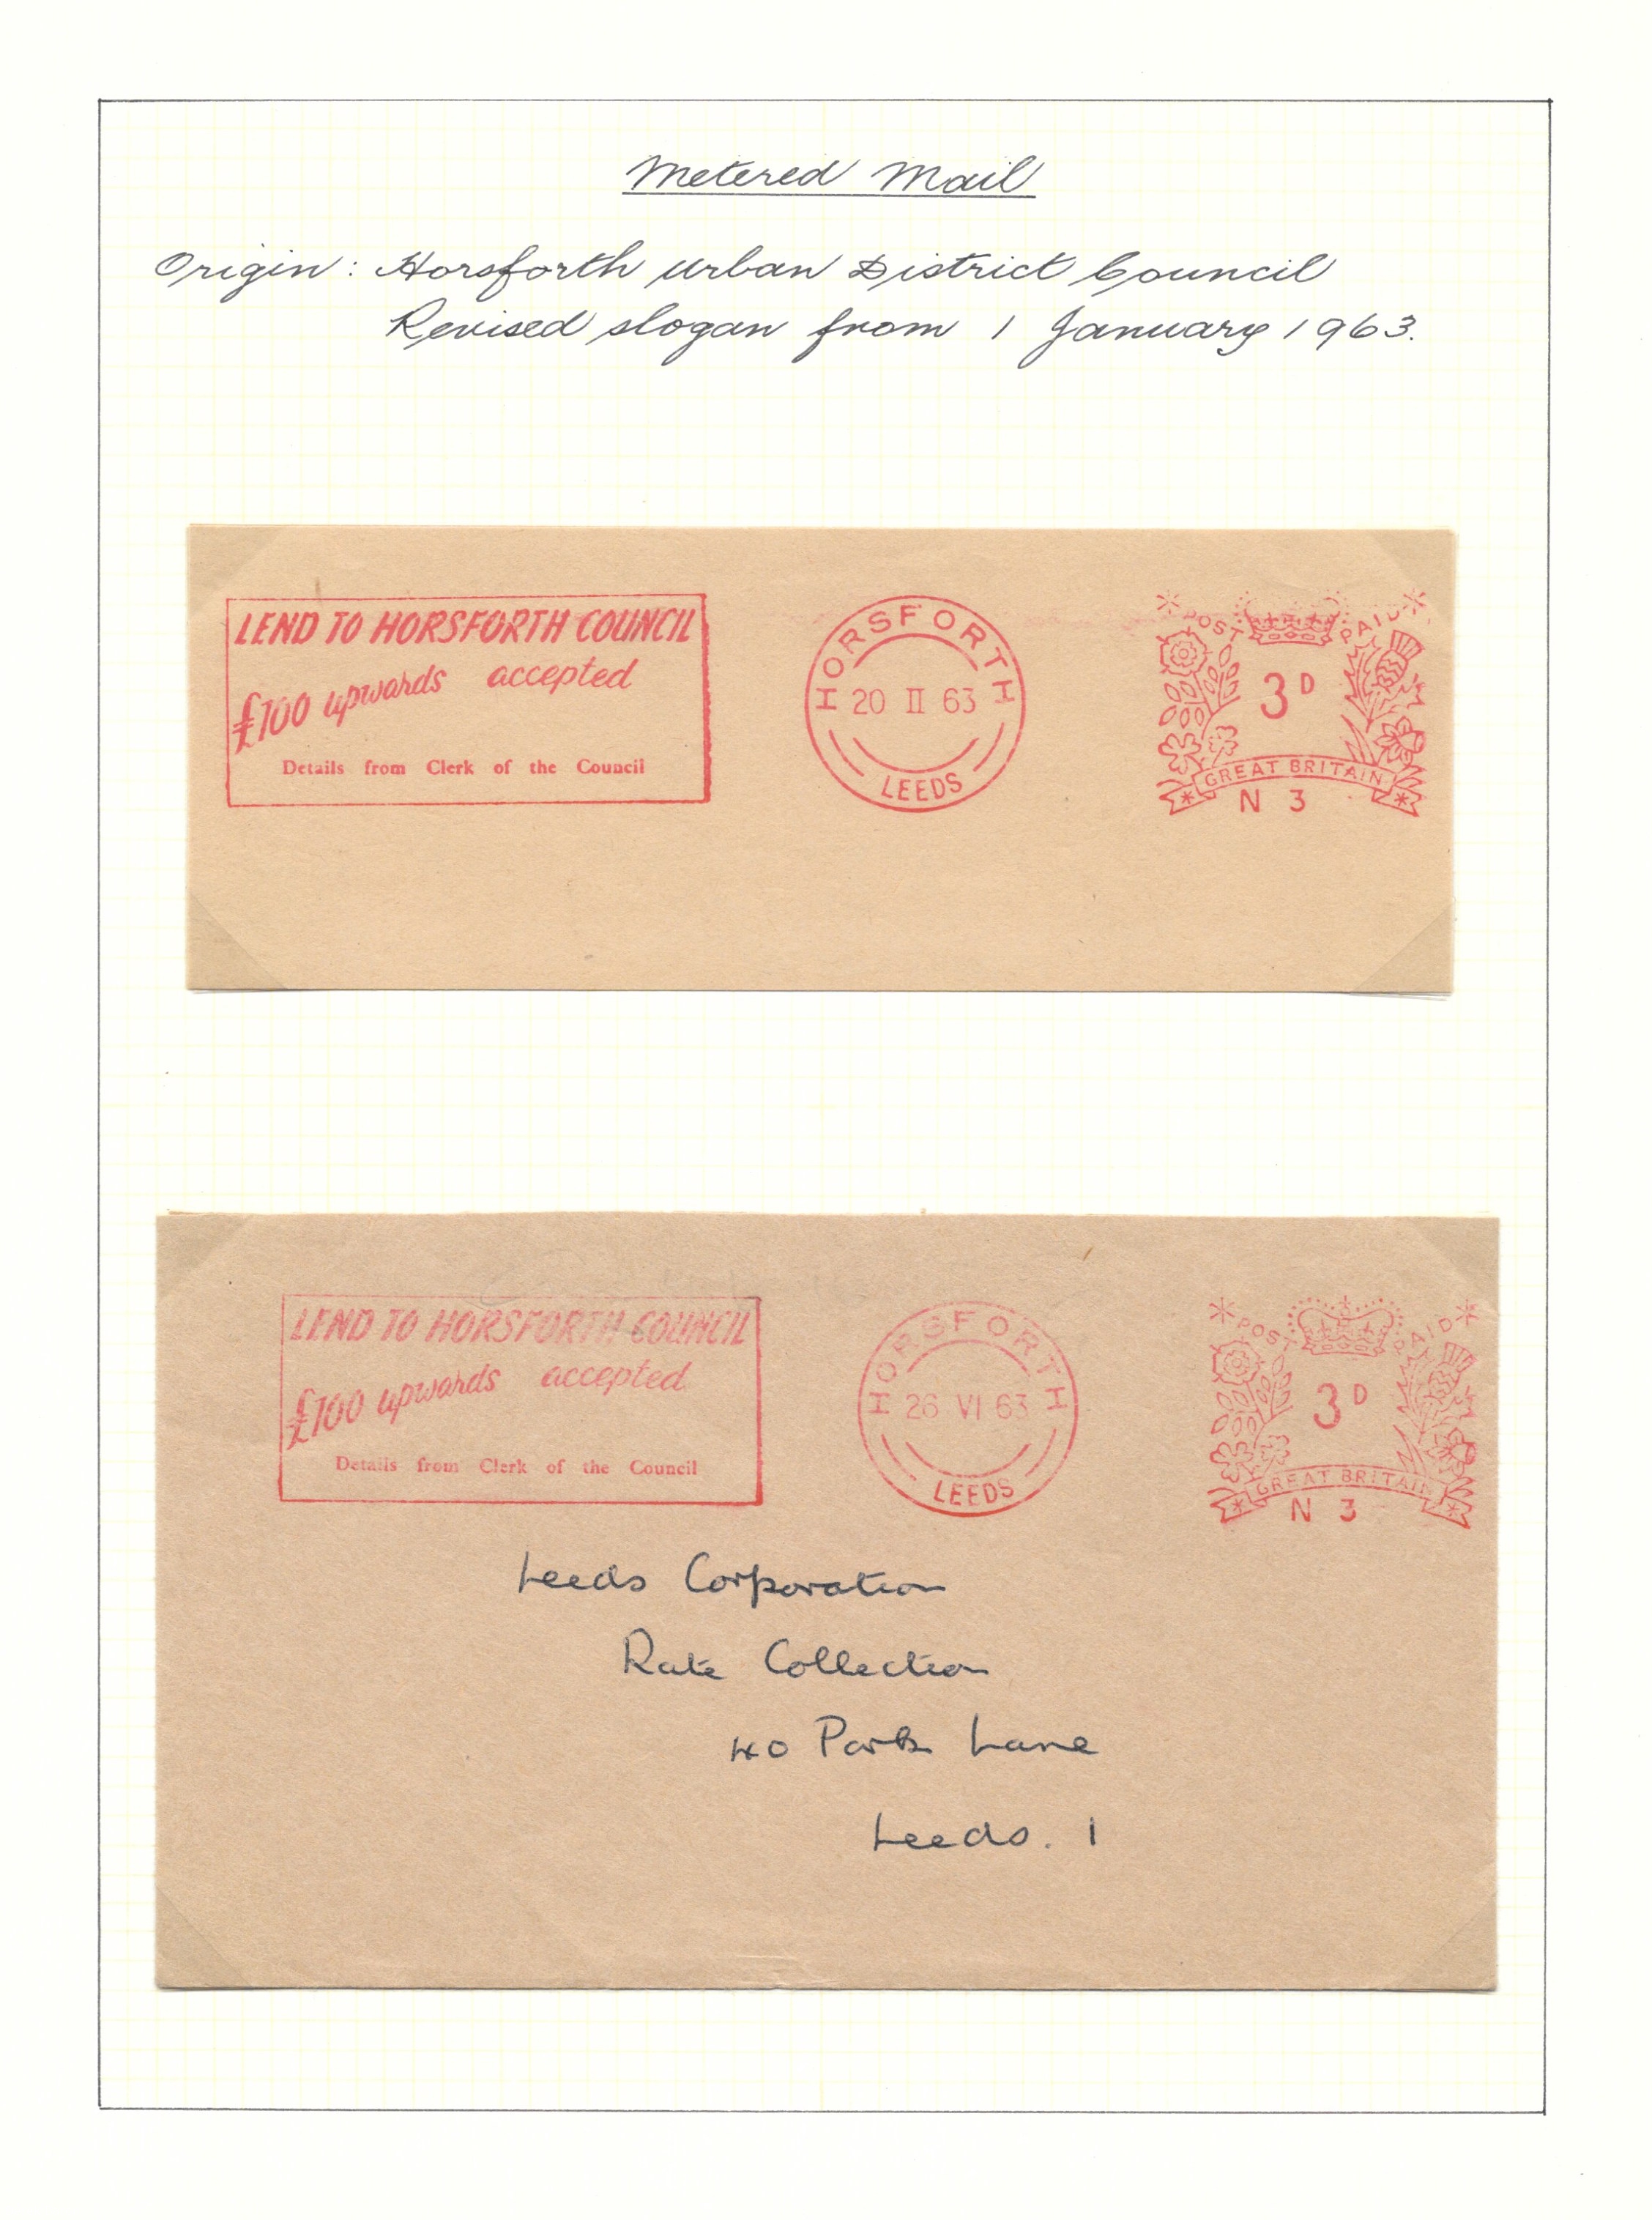 Metered Mail
Origin: Horsforth Urban District Council
Revised slogan from 1 January 1963.
LEND TO HORSFORTH COUNCIL
£100 upwards accepted
Details from Clerk of the Council
HORSFORTH
20 II 63
LEEDS
POST PAID
3D
GREAT BRITAIN
N 3
LEND TO HORSFORTH COUNCIL
£100 upwards accepted
Details from Clerk of the Council
HORSFORTH
26 VI 63
LEEDS
POST PAID
3D
GREAT BRITAIN
N 3
Leeds Corporation
Rate Collection
40 Park Lane
Leeds. 1